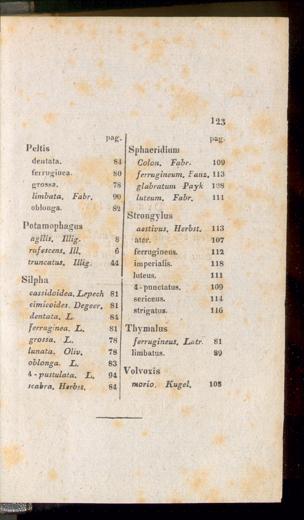 123
pag.
Peltis
dentata. 84
ferruginea. 80
grossa. 78
limbata, Fabr. 90
oblonga. 82
Potamophagus
agilis, Illig. 8
rufescens, Ill. 6
truncatus, Illig. 44
Silpha
cassidoidea, Lepech 81
cimicoides. Degeer. 81
dentata. L. 84
ferruginea. L. 81
grossa. L. 78
lunata. Oliv. 78
oblonga. L. 83
4-pustulata. L. 94
scabra, Herbst. 84
pag.
Sphaeridium
Colon. Fabr. 109
ferrugineum. Panz. 113
glabratum Payk 108
luteum. Fabr. 111
Strongylus
aestivus. Herbst. 113
ater. 107
ferrugineus. 112
imperialis. 118
luteus. 111
4-punctatus. 109
sericeus. 114
strigatus. 116
Thymalus
ferrugineus. Latr. 81
limbatus. 89
Volvoxis
morio. Kugel. 108